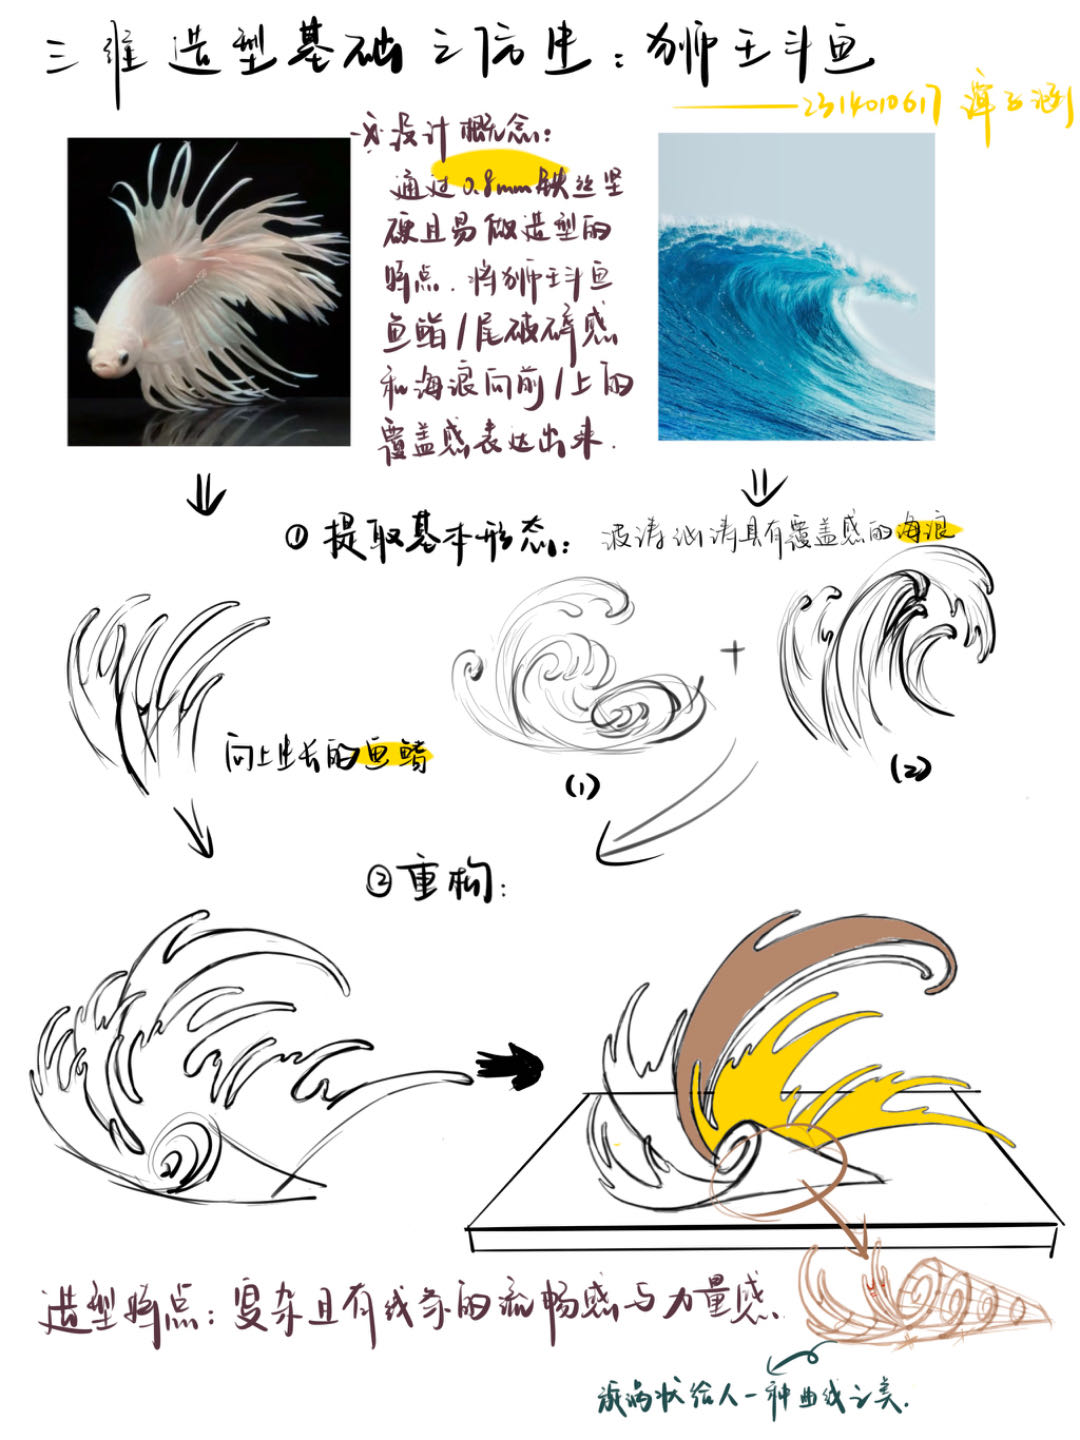 三维造型基础之仿生：狮王斗鱼
——2314010617 谭
设计概念：
通过0.8mm铁丝坚
硬且易做造型的
特点．将狮王斗鱼
鱼鳍/尾破碎感
和海浪向前/上的
覆盖感表达出来．
①提取基本形态：
波涛汹涛具有覆盖感的海浪
+
向上生长的鱼鳍
(1)
(2)
②重构：
造型特点：复杂且有线条的流畅感与力量感．
漩涡状给人一种曲线之美．